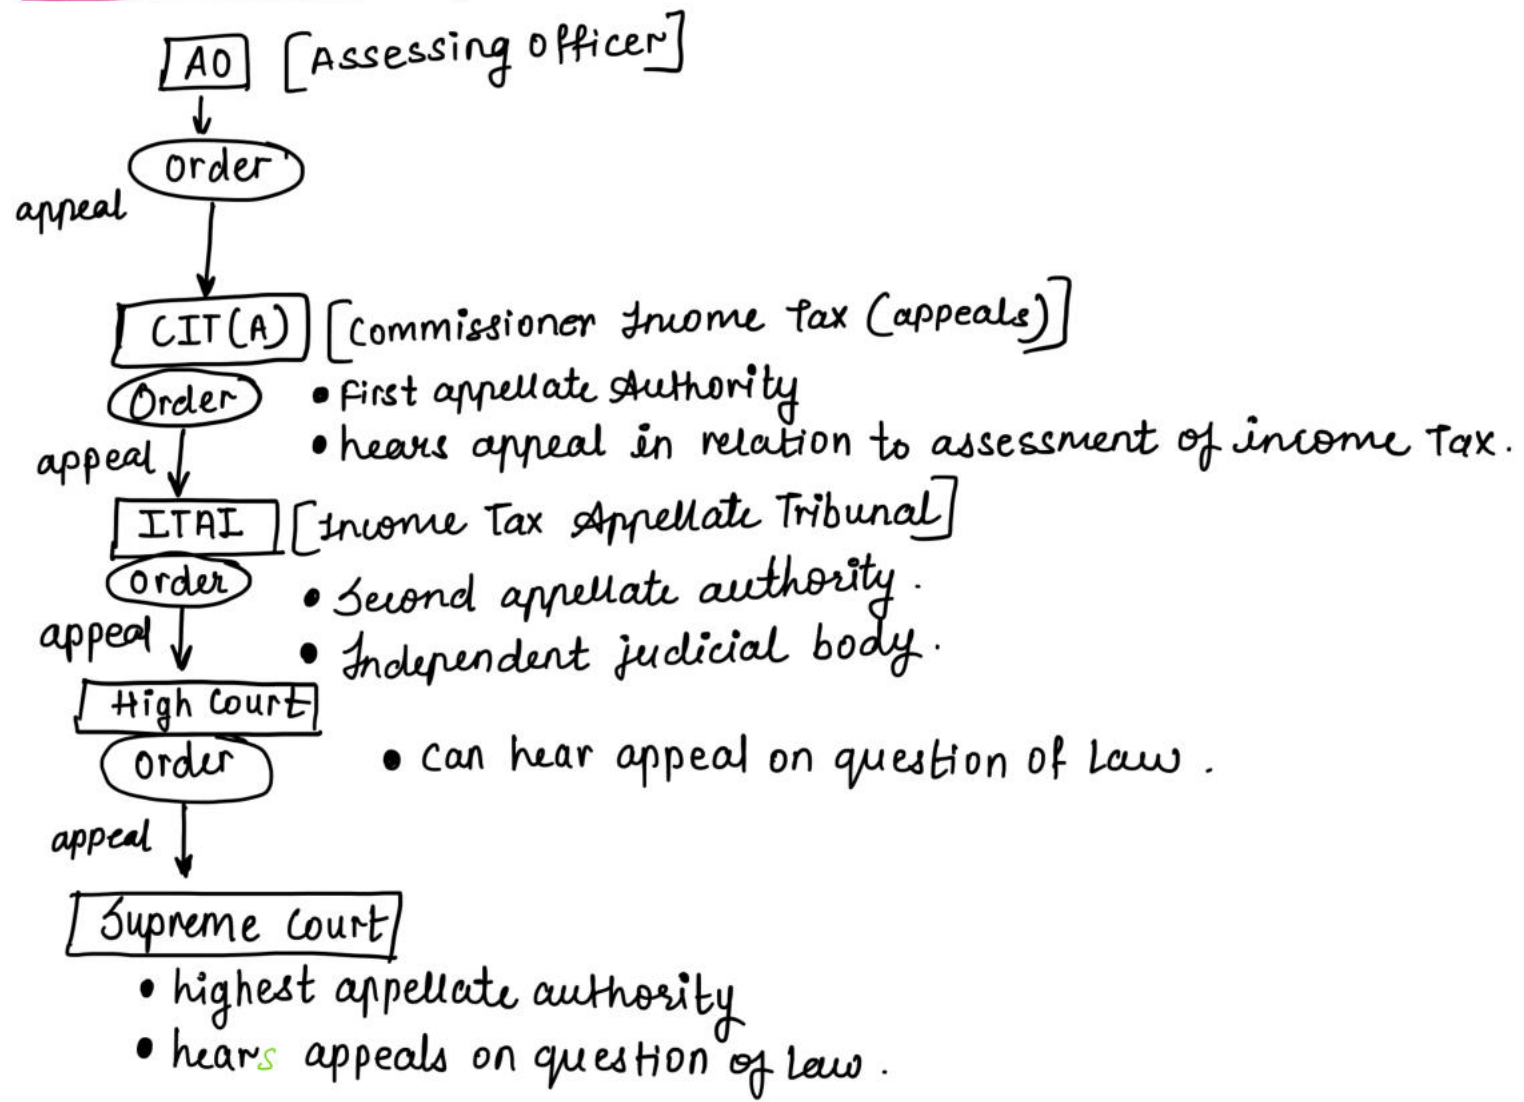 AO [Assessing Officer]
Order
appeal
CIT(A) [Commissioner Income Tax (appeals)]
Order • First appellate Authority
appeal • hears appeal in relation to assessment of income Tax.
ITAI [Income Tax Appellate Tribunal]
Order • Second appellate authority.
appeal • Independent judicial body.
High Court
Order • Can hear appeal on question of Law.
appeal
Supreme Court
• highest appellate authority
• hears appeals on question of Law.